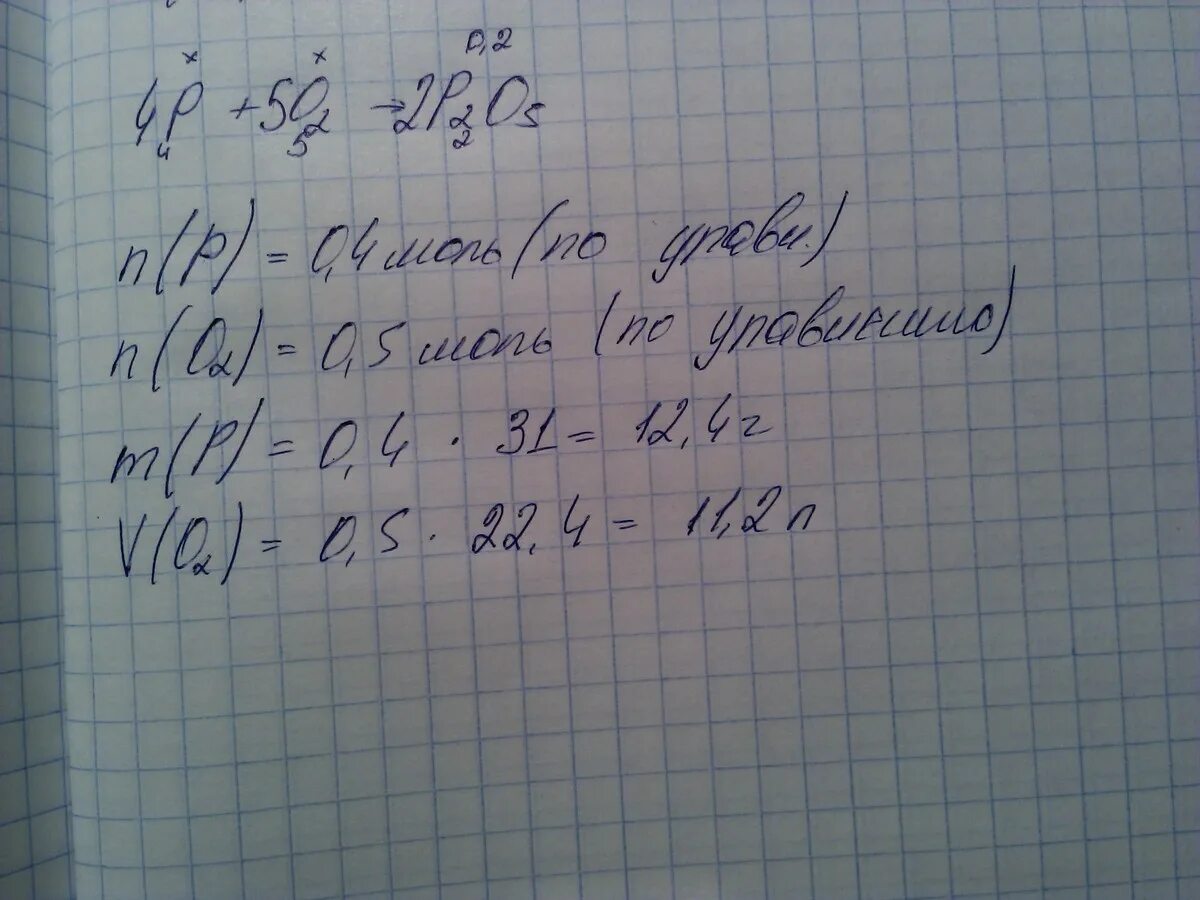 x x 0,2
4P + 5O₂ → 2P₂O₅
4 5 2
n(P) = 0,4 моль (по уравн.)
n(O₂) = 0,5 моль (по уравнению)
m(P) = 0,4 · 31 = 12,4 г
V(O₂) = 0,5 · 22,4 = 11,2 л